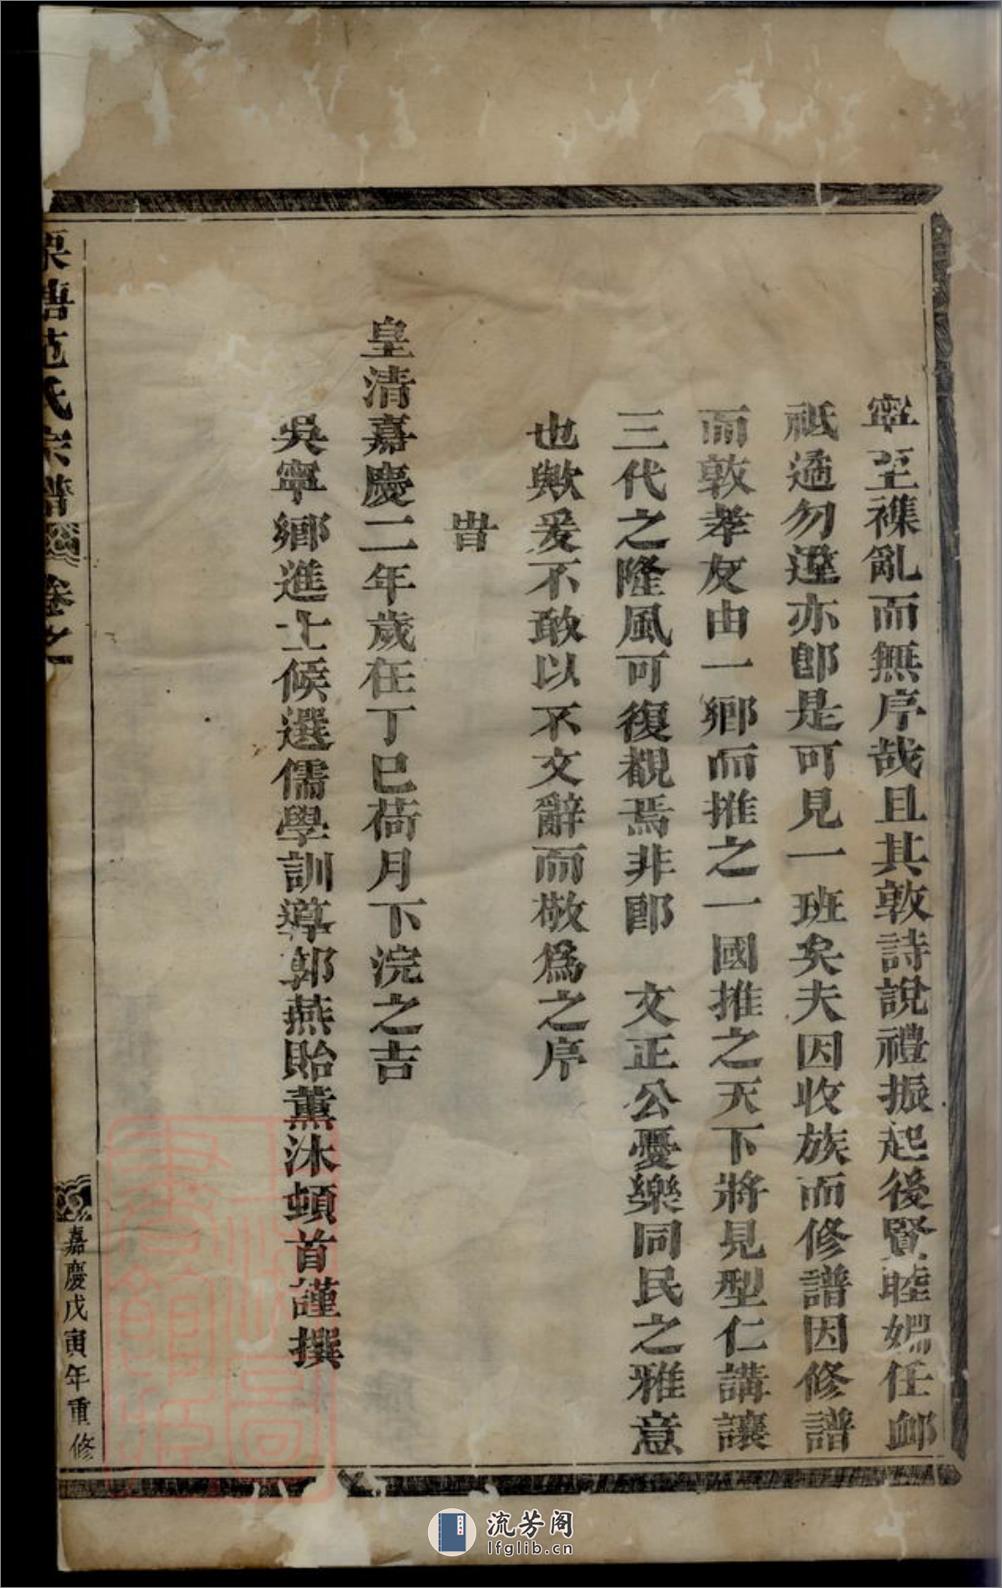 寧至襍亂而無序哉且其敦詩說禮振起後賢睦婣任卹
祗遹勿遑亦卽是可見一班矣夫因收族而修譜因修譜
而敦孝友由一鄉而推之一國推之天下將見型仁講讓
三代之隆風可復觀焉非卽　文正公憂樂同民之雅意
也歟爰不敢以不文辭而敬爲之序
旹
皇清嘉慶二年歲在丁巳荷月下浣之吉
吳寧鄉進士候選儒學訓導郭燕貽薰沐頓首謹撰
栗塘范氏宗譜 卷之一
嘉慶戊寅年重修
流芳阁
lfglib.cn